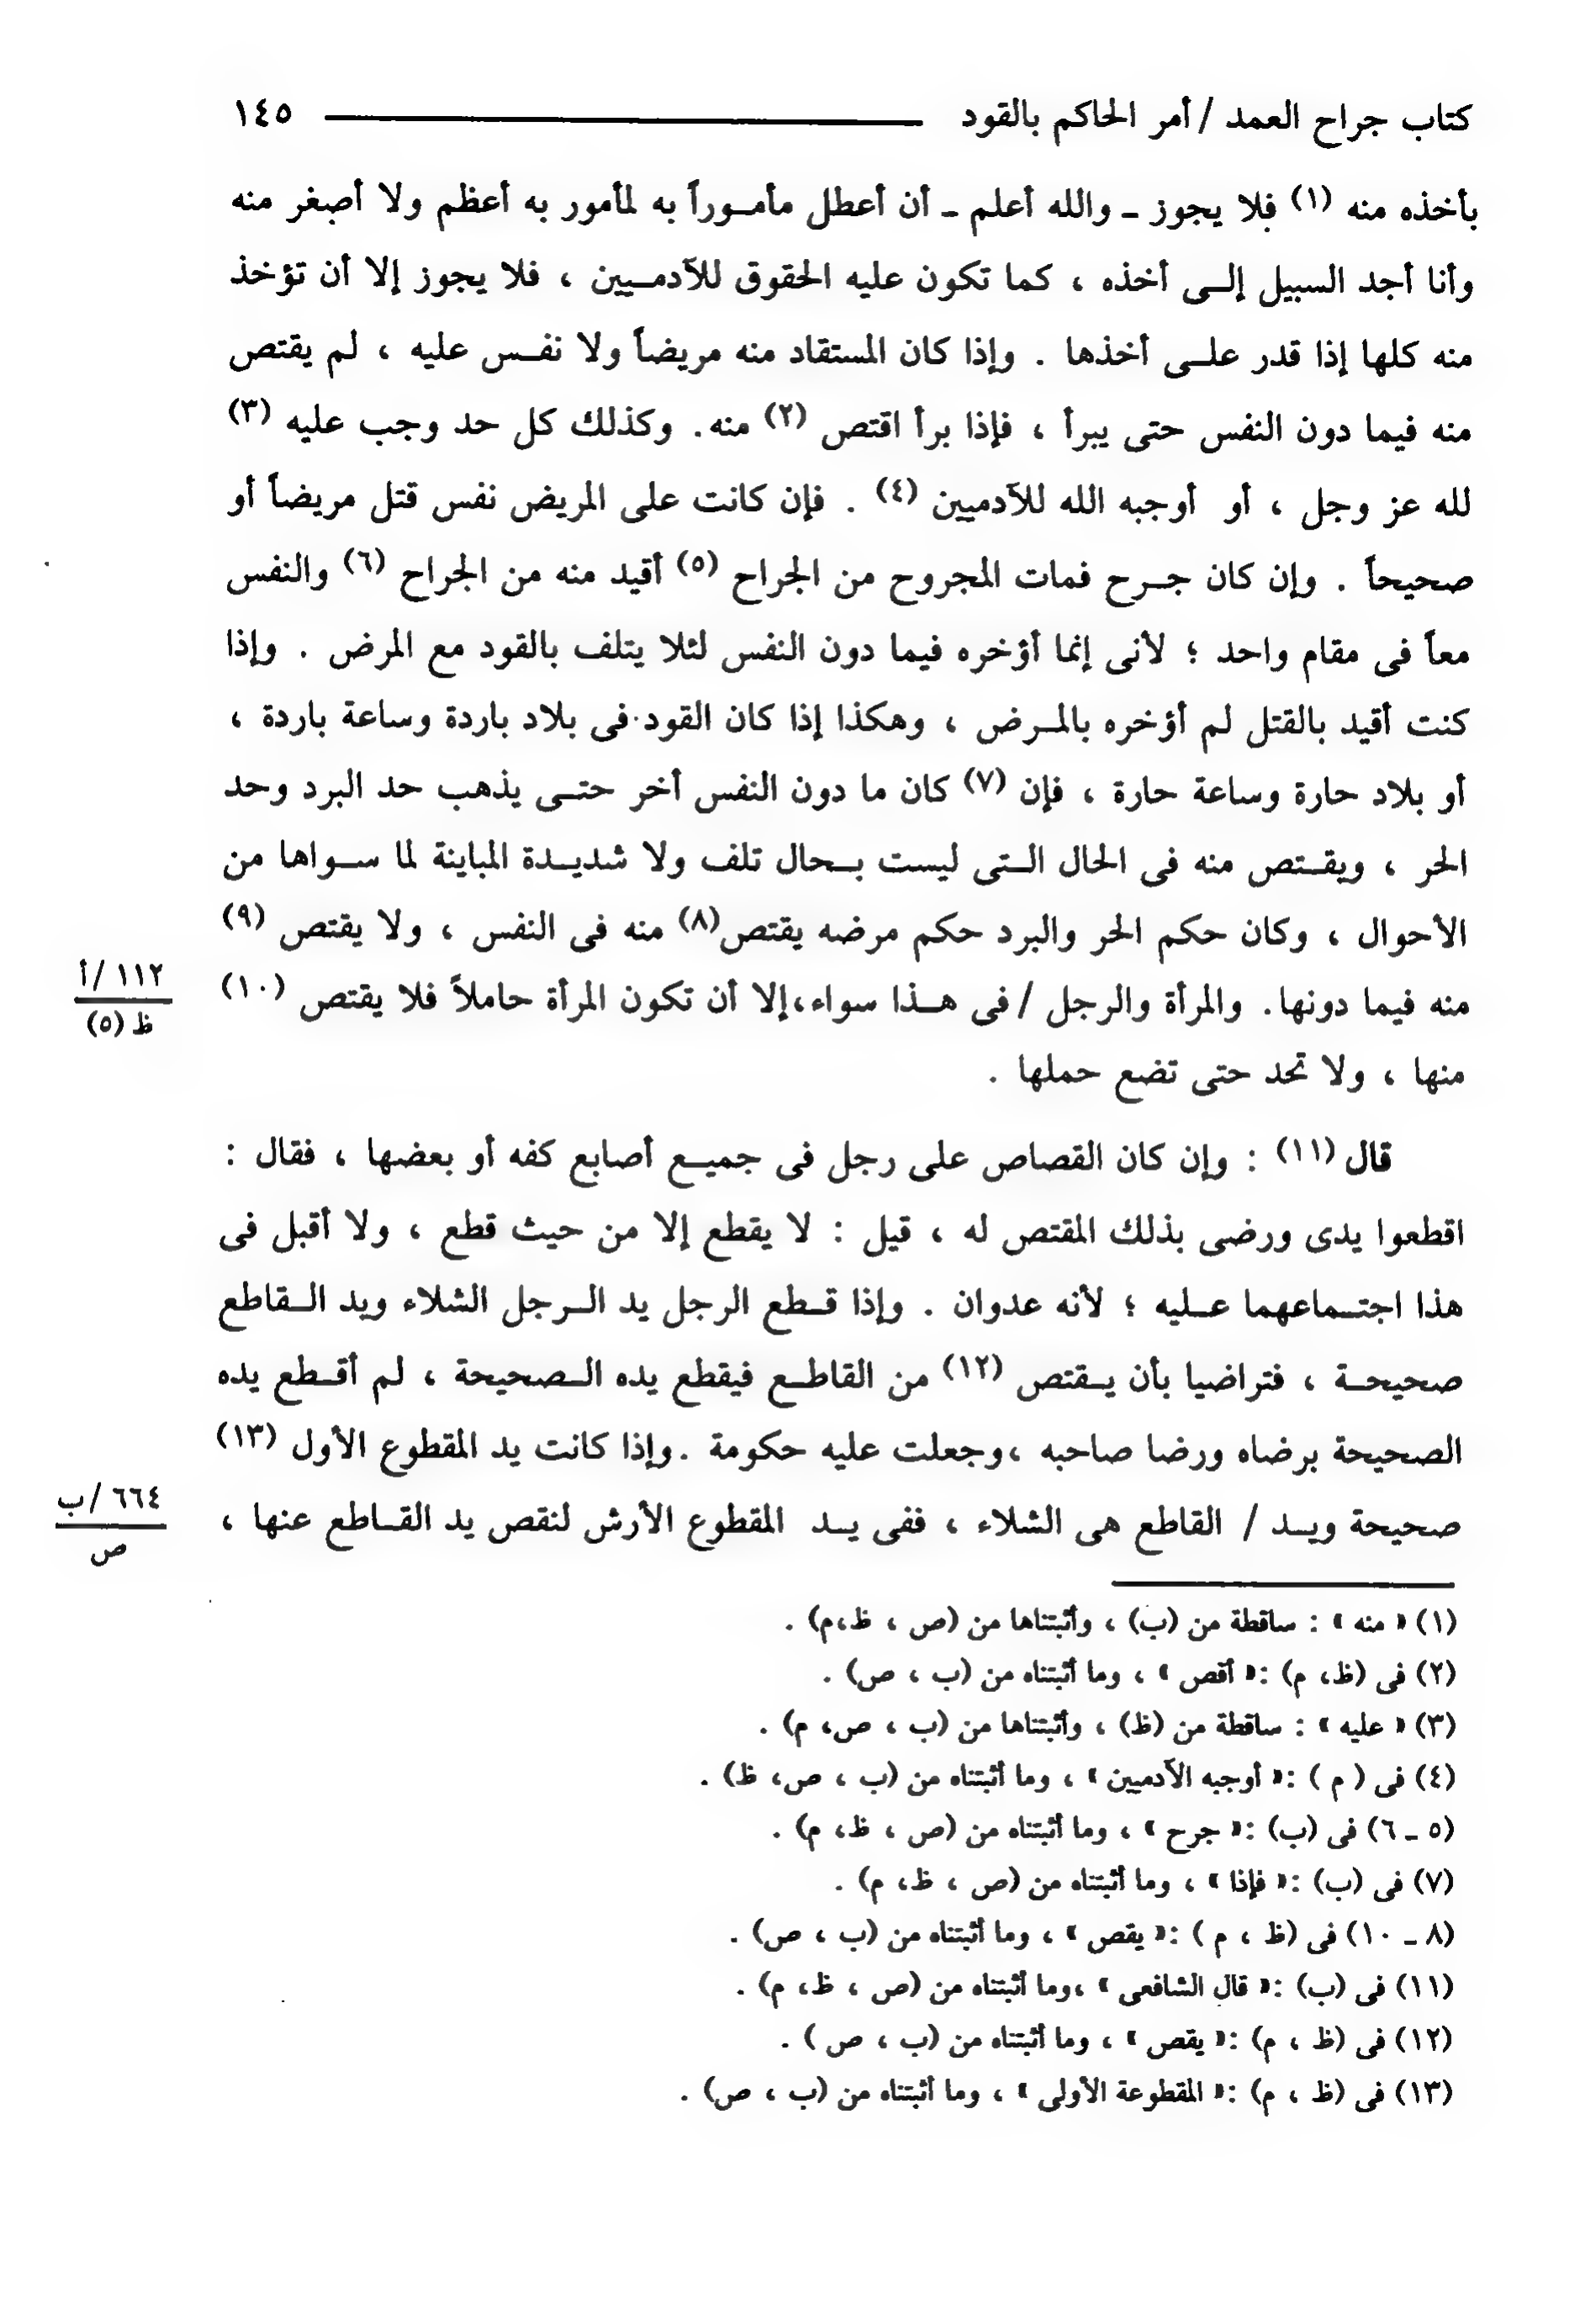 كتاب جراح العمد / أمر الحاكم بالقود ــــــــــــــــــ ١٤٥
بأخذه منه (١) فلا يجوز ـ والله أعلم ـ أن أعطل مأموراً به لمأمور به أعظم ولا أصغر منه
وأنا أجد السبيل إلى أخذه ، كما تكون عليه الحقوق للآدميين ، فلا يجوز إلا أن تؤخذ
منه كلها إذا قدر على أخذها . وإذا كان المستقاد منه مريضاً ولا نفس عليه ، لم يقتص
منه فيما دون النفس حتى يبرأ ، فإذا برأ اقتص (٢) منه. وكذلك كل حد وجب عليه (٣)
لله عز وجل ، أو أوجبه الله للآدميين (٤) . فإن كانت على المريض نفس قتل مريضاً أو
صحيحاً . وإن كان جرح فمات المجروح من الجراح (٥) أقيد منه من الجراح (٦) والنفس
معاً فى مقام واحد ؛ لأنى إنما أؤخره فيما دون النفس لئلا يتلف بالقود مع المرض . وإذا
كنت أقيد بالقتل لم أؤخره بالمرض ، وهكذا إذا كان القود فى بلاد باردة وساعة باردة ،
أو بلاد حارة وساعة حارة ، فإن (٧) كان ما دون النفس أخر حتى يذهب حد البرد وحد
الحر ، ويقتص منه فى الحال التى ليست بحال تلف ولا شديدة المباينة لما سواها من
الأحوال ، وكان حكم الحر والبرد حكم مرضه يقتص(٨) منه فى النفس ، ولا يقتص (٩)
منه فيما دونها. والمرأة والرجل / فى هذا سواء،إلا أن تكون المرأة حاملاً فلا يقتص (١٠)
١١٢ /أ
ظ (٥)
منها ، ولا تحد حتى تضع حملها .
قال (١١) : وإن كان القصاص على رجل فى جميع أصابع كفه أو بعضها ، فقال :
اقطعوا يدى ورضى بذلك المقتص له ، قيل : لا يقطع إلا من حيث قطع ، ولا أقبل فى
هذا اجتماعهما عليه ؛ لأنه عدوان . وإذا قطع الرجل يد الرجل الشلاء ويد القاطع
صحيحة ، فتراضيا بأن يقتص (١٢) من القاطع فيقطع يده الصحيحة ، لم أقطع يده
الصحيحة برضاه ورضا صاحبه ،وجعلت عليه حكومة .وإذا كانت يد المقطوع الأول (١٣)
صحيحة ويد / القاطع هى الشلاء ، ففى يد المقطوع الأرش لنقص يد القاطع عنها ،
٦٦٤ /ب
ص
(١) « منه » : ساقطة من (ب) ، وأثبتناها من (ص ، ظ،م) .
(٢) فى (ظ، م) :« أقص » ، وما أثبتناه من (ب ، ص) .
(٣) « عليه » : ساقطة من (ظ) ، وأثبتناها من (ب ، ص، م) .
(٤) فى ( م ) :« أوجبه الآدميين » ، وما أثبتناه من (ب ، ص، ظ) .
(٥ ـ ٦) فى (ب) :« جرح » ، وما أثبتناه من (ص ، ظ، م) .
(٧) فى (ب) :« فإذا » ، وما أثبتناه من (ص ، ظ، م) .
(٨ ـ ١٠) فى (ظ ، م ) :« يقص » ، وما أثبتناه من (ب ، ص) .
(١١) فى (ب) :« قال الشافعى » ،وما أثبتناه من (ص ، ظ، م) .
(١٢) فى (ظ ، م) :« يقص » ، وما أثبتناه من (ب ، ص ) .
(١٣) فى (ظ ، م) :« المقطوعة الأولى » ، وما أثبتناه من (ب ، ص) .